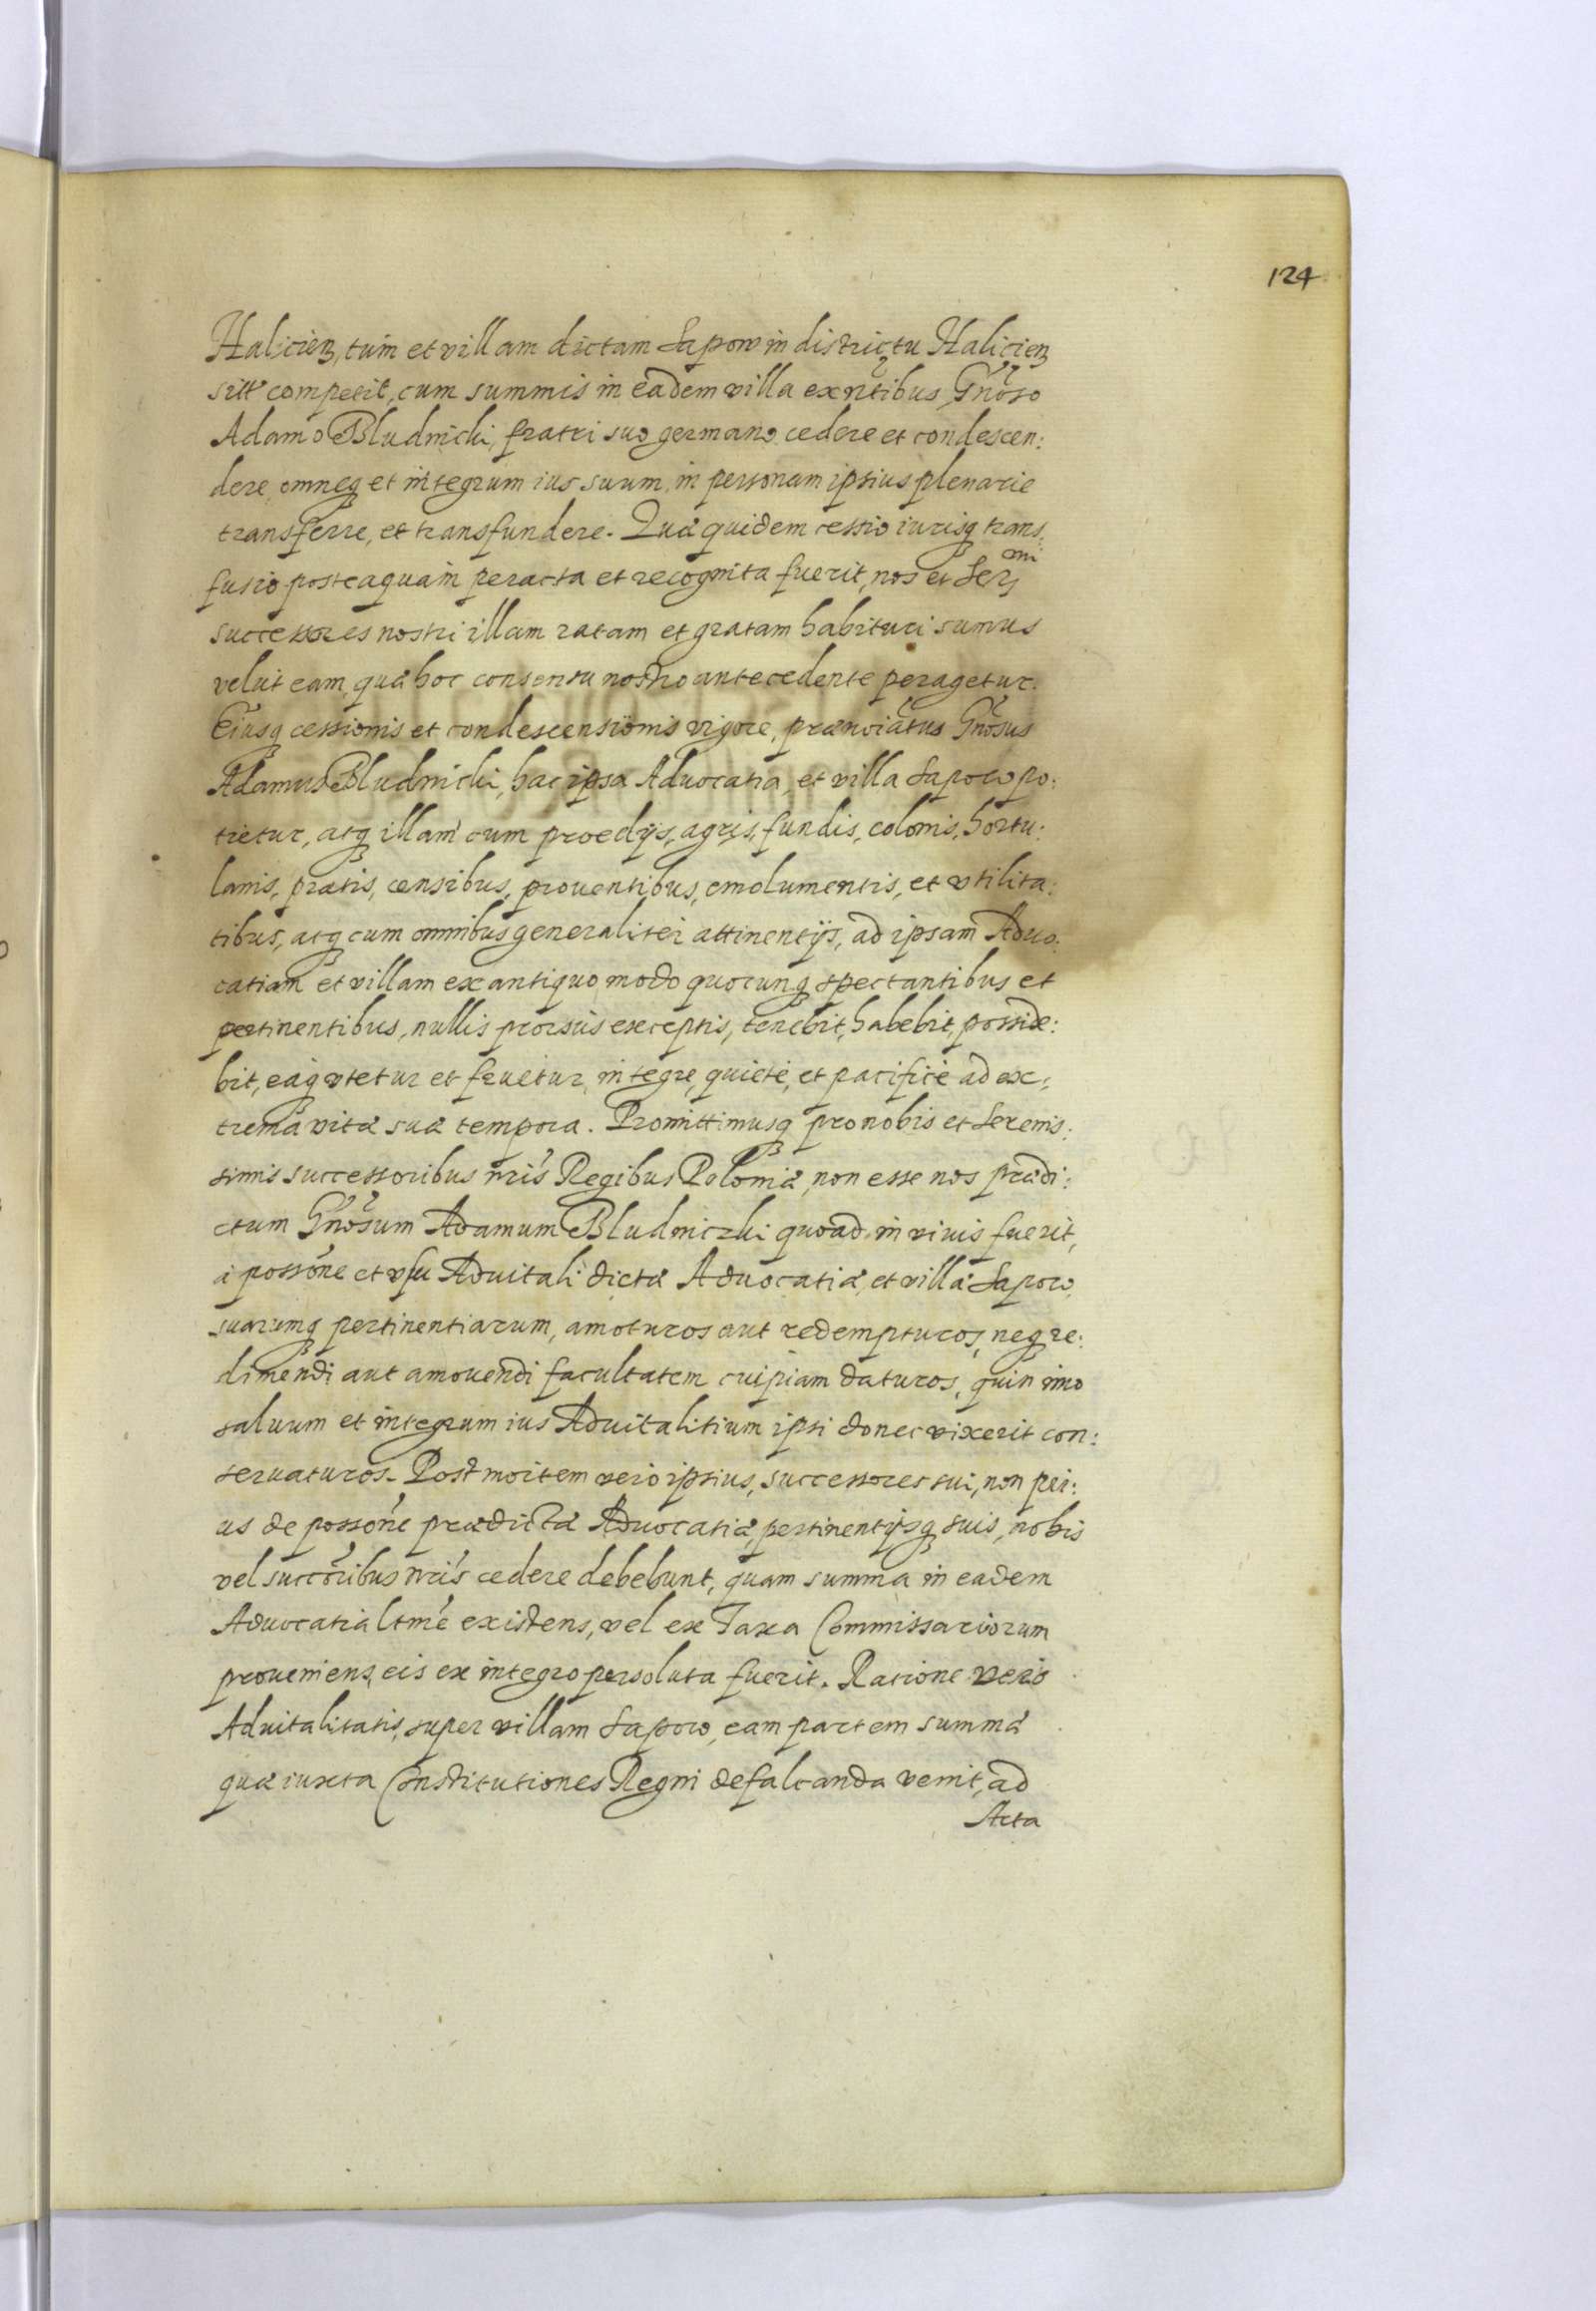 124
Halicien, tum et villam dictam Sapow in districtu Halicien
sitt competit, cum summis in eadem villa exñtibus, Gñoso
Adamo Bludnicki, fratri suo germano cedere et condescen:
dere, omneq et integrum ius suum, in personam ipsius plenarie
transferre, et transfundere. Quæ quidem cessio iurisq trans:
fusio posteaquam peracta et recognita fuerit, nos et Serᵐⁱ
successores nostri illam ratam et gratam habituri sumus
velut eam, quæ hoc consensu nostro antecedente peragetur.
Eiusq cessionis et condescensionis vigore, prænoiatus Gñosus
Adamus Bludnicki, hac ipsa Aduocatia, et villa Sapow po:
tietur, atq illam cum prædijs, agris, fundis, colonis, hortu:
lanis, pratis, censibus, prouentibus, emolumentis, et vtilita:
tibus, atq cum omnibus generaliter attinentijs, ad ipsam Aduo:
catiam et villam ex antiquo modo quocunq spectantibus et
pertinentibus, nullis prorsus exceptis, tenebit, habebit, posside:
bit, eaq vtetur et fruetur, integre, quiete, et pacifice ad ex:
trema vitæ suæ tempora. Promittimusq pro nobis et Serenis:
simis successoribus nris Regibus Poloniæ, non esse nos prædi:
ctum Gñosum Adamum Bludniczki quoad in viuis fuerit,
à possone et vsu Aduitali dictæ Aduocatiæ, et villæ Sapow,
suarumq pertinentiarum, amoturos aut redempturos, neq re:
dimendi aut amouendi facultatem cuipiam daturos, quin imo
saluum et integrum ius Aduitalitium ipsi donec vixerit con:
seruaturos. Post mortem vero ipsius, successores sui, non pri:
us de possone prædictæ Aduocatiæ, pertinentijsq suis, nobis
vel succoribus nris cedere debebunt, quam summa in eadem
Aduocatia ltme existens, vel ex Taxa Commissariorum
proueniens, eis ex integro persoluta fuerit. Ratione vero
Aduitalitatis, super villam Sapow, eam partem summæ
quæ iuxta Constitutiones Regni defalcanda venit, ad
Acta